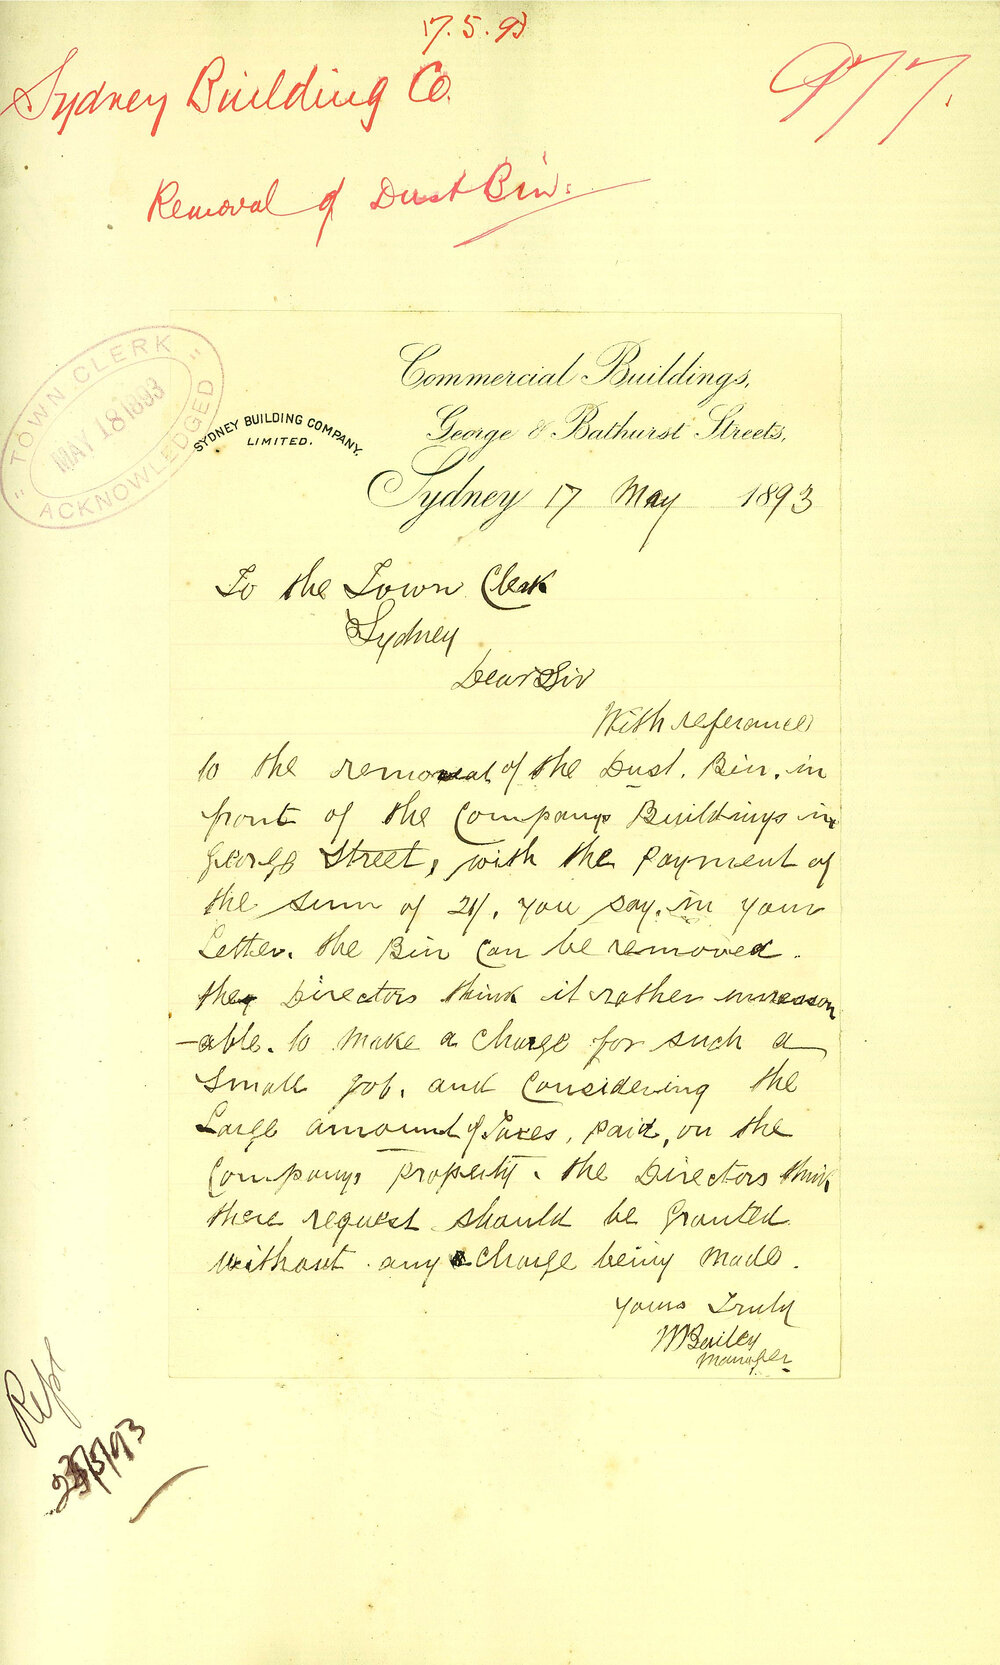 17.5.93
Sydney Building Co.
977.
Removal of Dust Bin.
"TOWN CLERK"
MAY 18 1893
ACKNOWLEDGED
SYDNEY BUILDING COMPANY.
LIMITED.
Commercial Buildings,
George & Bathurst Streets,
Sydney 17 May 1893
To the Town Clerk
Sydney
Dear Sir
With referance
to the removal of the Dust. Bin. in
front of the Companys Buildings in
George Street, with the payment of
the sum of 21/. you say. in your
Letter. the Bin can be removed.
the Directors think it rather unreason
-able. to make a charge for such a
small job. and considering the
Large amount of Taxes, paid, on the
Companys property. the Directors think
there request should be granted
without any charge being made.
Yours Truly
W Bailey
Manager
/5/93